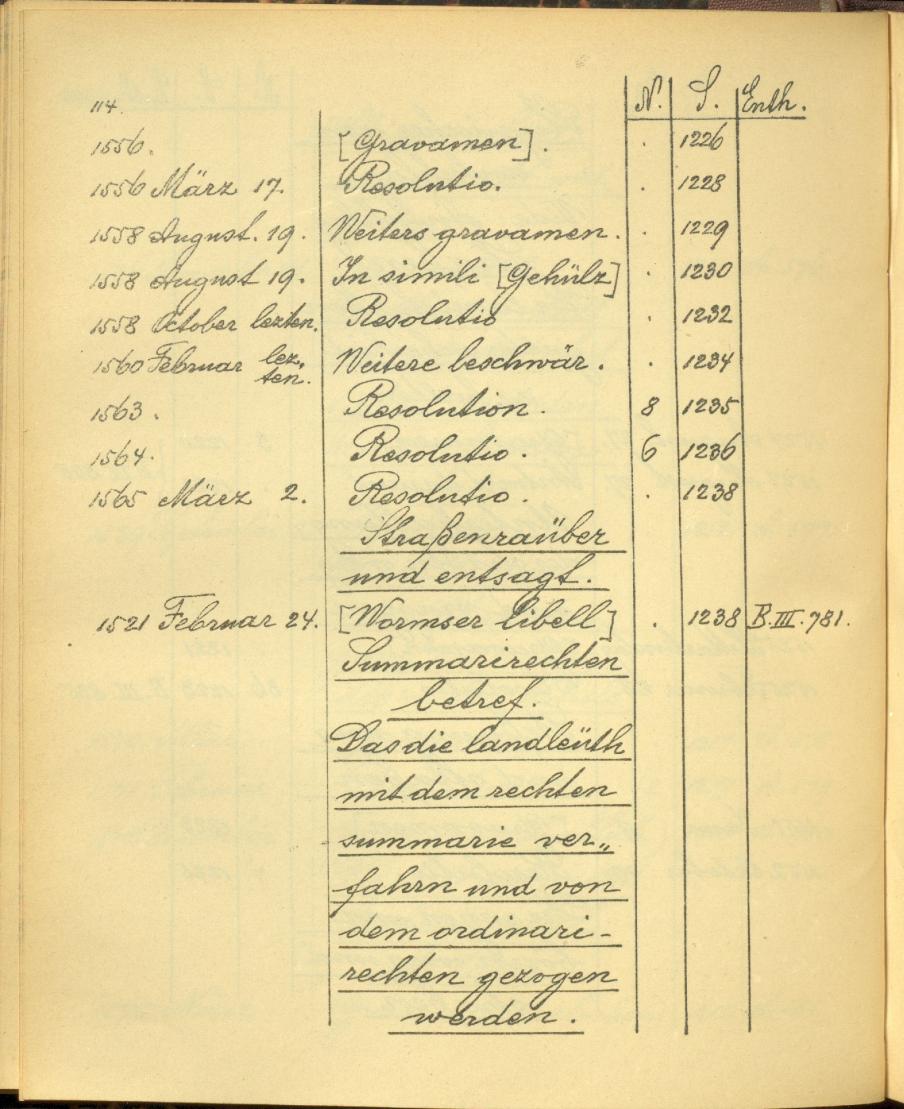 114. N. S. Enth.
1556. [Gravamen]. . 1226
1556 März 17. Resolutio. . 1228
1558 August. 19. Weiters gravamen. . 1229
1558 August 19. In simili [Gehülz] . 1230
1558 October lezten. Resolutio . 1232
1560 Februar lez„ten. Weitere beschwär. . 1234
1563. Resolution. 8 1235
1564. Resolutio. 6 1236
1565 März 2. Resolutio. . 1238
Straßenraüber
und entsagt.
1521 Februar 24. [Wormser libell] . 1238 B.III.781.
Summarirechten
betref.
Das die landleüth
mit dem rechten
summarie ver„
fahrn und von
dem ordinari-
rechten gezogen
werden.